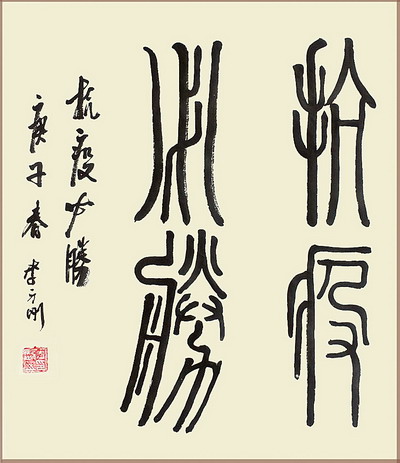 抗疫
必勝
抗疫必勝
庚子春 李方刚